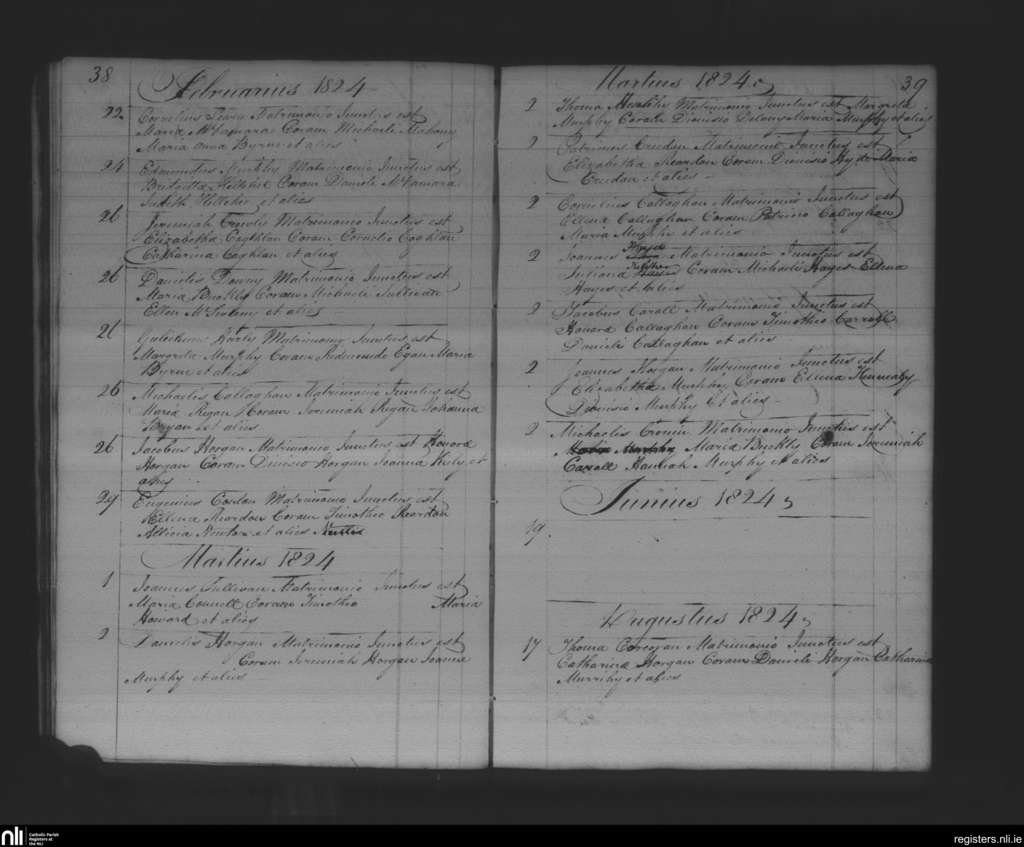 38
Februarius 1824
22 Cornelius Leary Matrimonio Junctus est
Maria McNamara Coram Michaele Mahony
Maria Anna Byrne et alies
24 Edmundus Murkhy Matrimonio Junctus est
Coram Daniele McNamara
Judith et alies
26 Jeremiah Matrimonio Junctus est
Elizabetha Coghlan Coram Cornelio Coghlan
Catharina Coghlan et alies
26 Danielis Downy Matrimonio Junctus est
Maria Buckly Coram Michaele Sullivan
Ellen et alies
26 Matrimonio Junctus est
Margreta Murphy Coram Redmundo Egan Maria
Byrne et alies
26 Michaelis Callaghan Matrimonio Junctus est
Maria Regan Coram Jeremiah Regan Johanna
et alies
26 Jacobus Horgan Matrimonio Junctus est Honora
Horgan Coram Dinisio Horgan Joanna Kiely et
alies
29 Eugenius Matrimonio Junctus est
Ellena Reordan Coram Timothio Reordan
et alies
Martius 1824
1 Joannes Sullivan Matrimonio Junctus est
Maria Connell Coram Timothio Maria
Howard et alies
2 Danielis Horgan Matrimonio Junctus est
Coram Jeremiah Horgan Joanna
Murphy et alies
Martius 1824
39
2 Thoma Matrimonio Junctus est Margreta
Murphy Coram Dionisio Maria Murphy et alies
2 Patricius Creedon Matrimonio Junctus est
Elizabetha Reardon Coram Dionisio Hyde Maria
Creedon et alies
2 Cornelius Callaghan Matrimonio Junctus est
Ellena Callaghan Coram Patricio Callaghan
Maria Murphy et alies
2 Joannes Hayes Matrimonio Junctus est
Juliana Coram Michaelis Hayes Ellena
Hayes et alies
2 Jacobus Caroll Matrimonio Junctus est
Honora Callaghan Coram Timothio Carroll
Danieli Callaghan et alies
2 Joannes Horgan Matrimonio Junctus est
Elizabetha Murphy Coram Ellena
Dionisio Murphy et alies
2 Michaelis Cronin Matrimonio Junctus est
Maria Buckly Coram Jeremiah
Carroll Hannah Murphy et alies
Junius 1824
19
Augustus 1824
17 Thoma Corcoran Matrimonio Junctus est
Catharina Horgan Coram Danieli Horgan Catharina
Murphy et alies
nli
Catholic Parish
Registers at
the NLI
registers.nli.ie